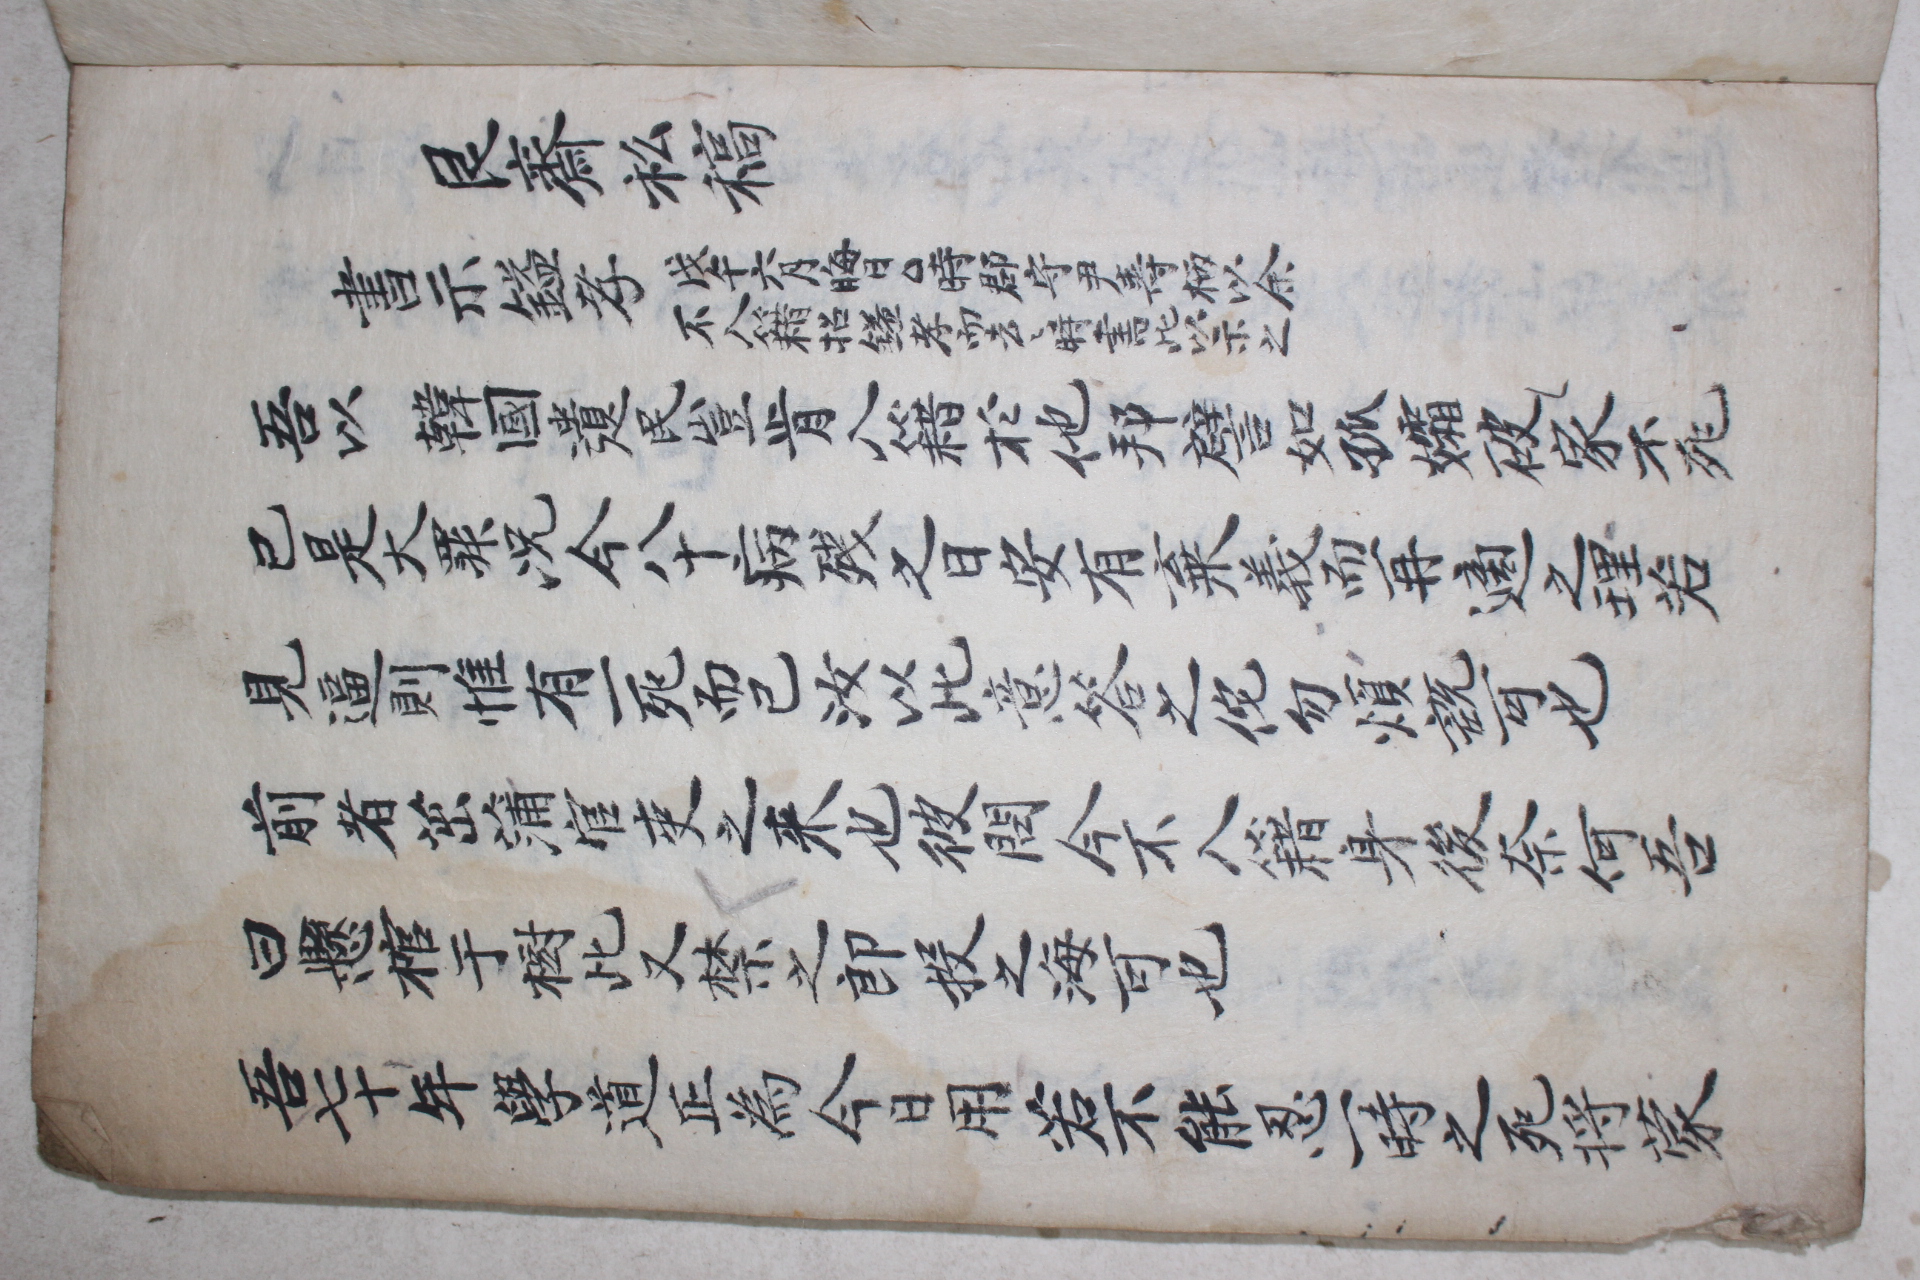 艮齋私稿
書示鎰孝 戊午六月晦日○時郡守尹壽炳以余
不入籍招鎰孝而去、時書此以示之
吾以 韓國遺民豈肯入籍於他邦譬如孤孀彼家不死
已是大罪况今八十病殘之日安有棄義而再適之理若
見逼則惟有一死而已汝以此意答之侊勿煩說可也
前者茁浦官吏之来也彼問今不入籍身後奈何吾
曰懸棺于樹此又禁之即投之海可也
吾七十年學道正為今日用若不能忍一時之死將蒙